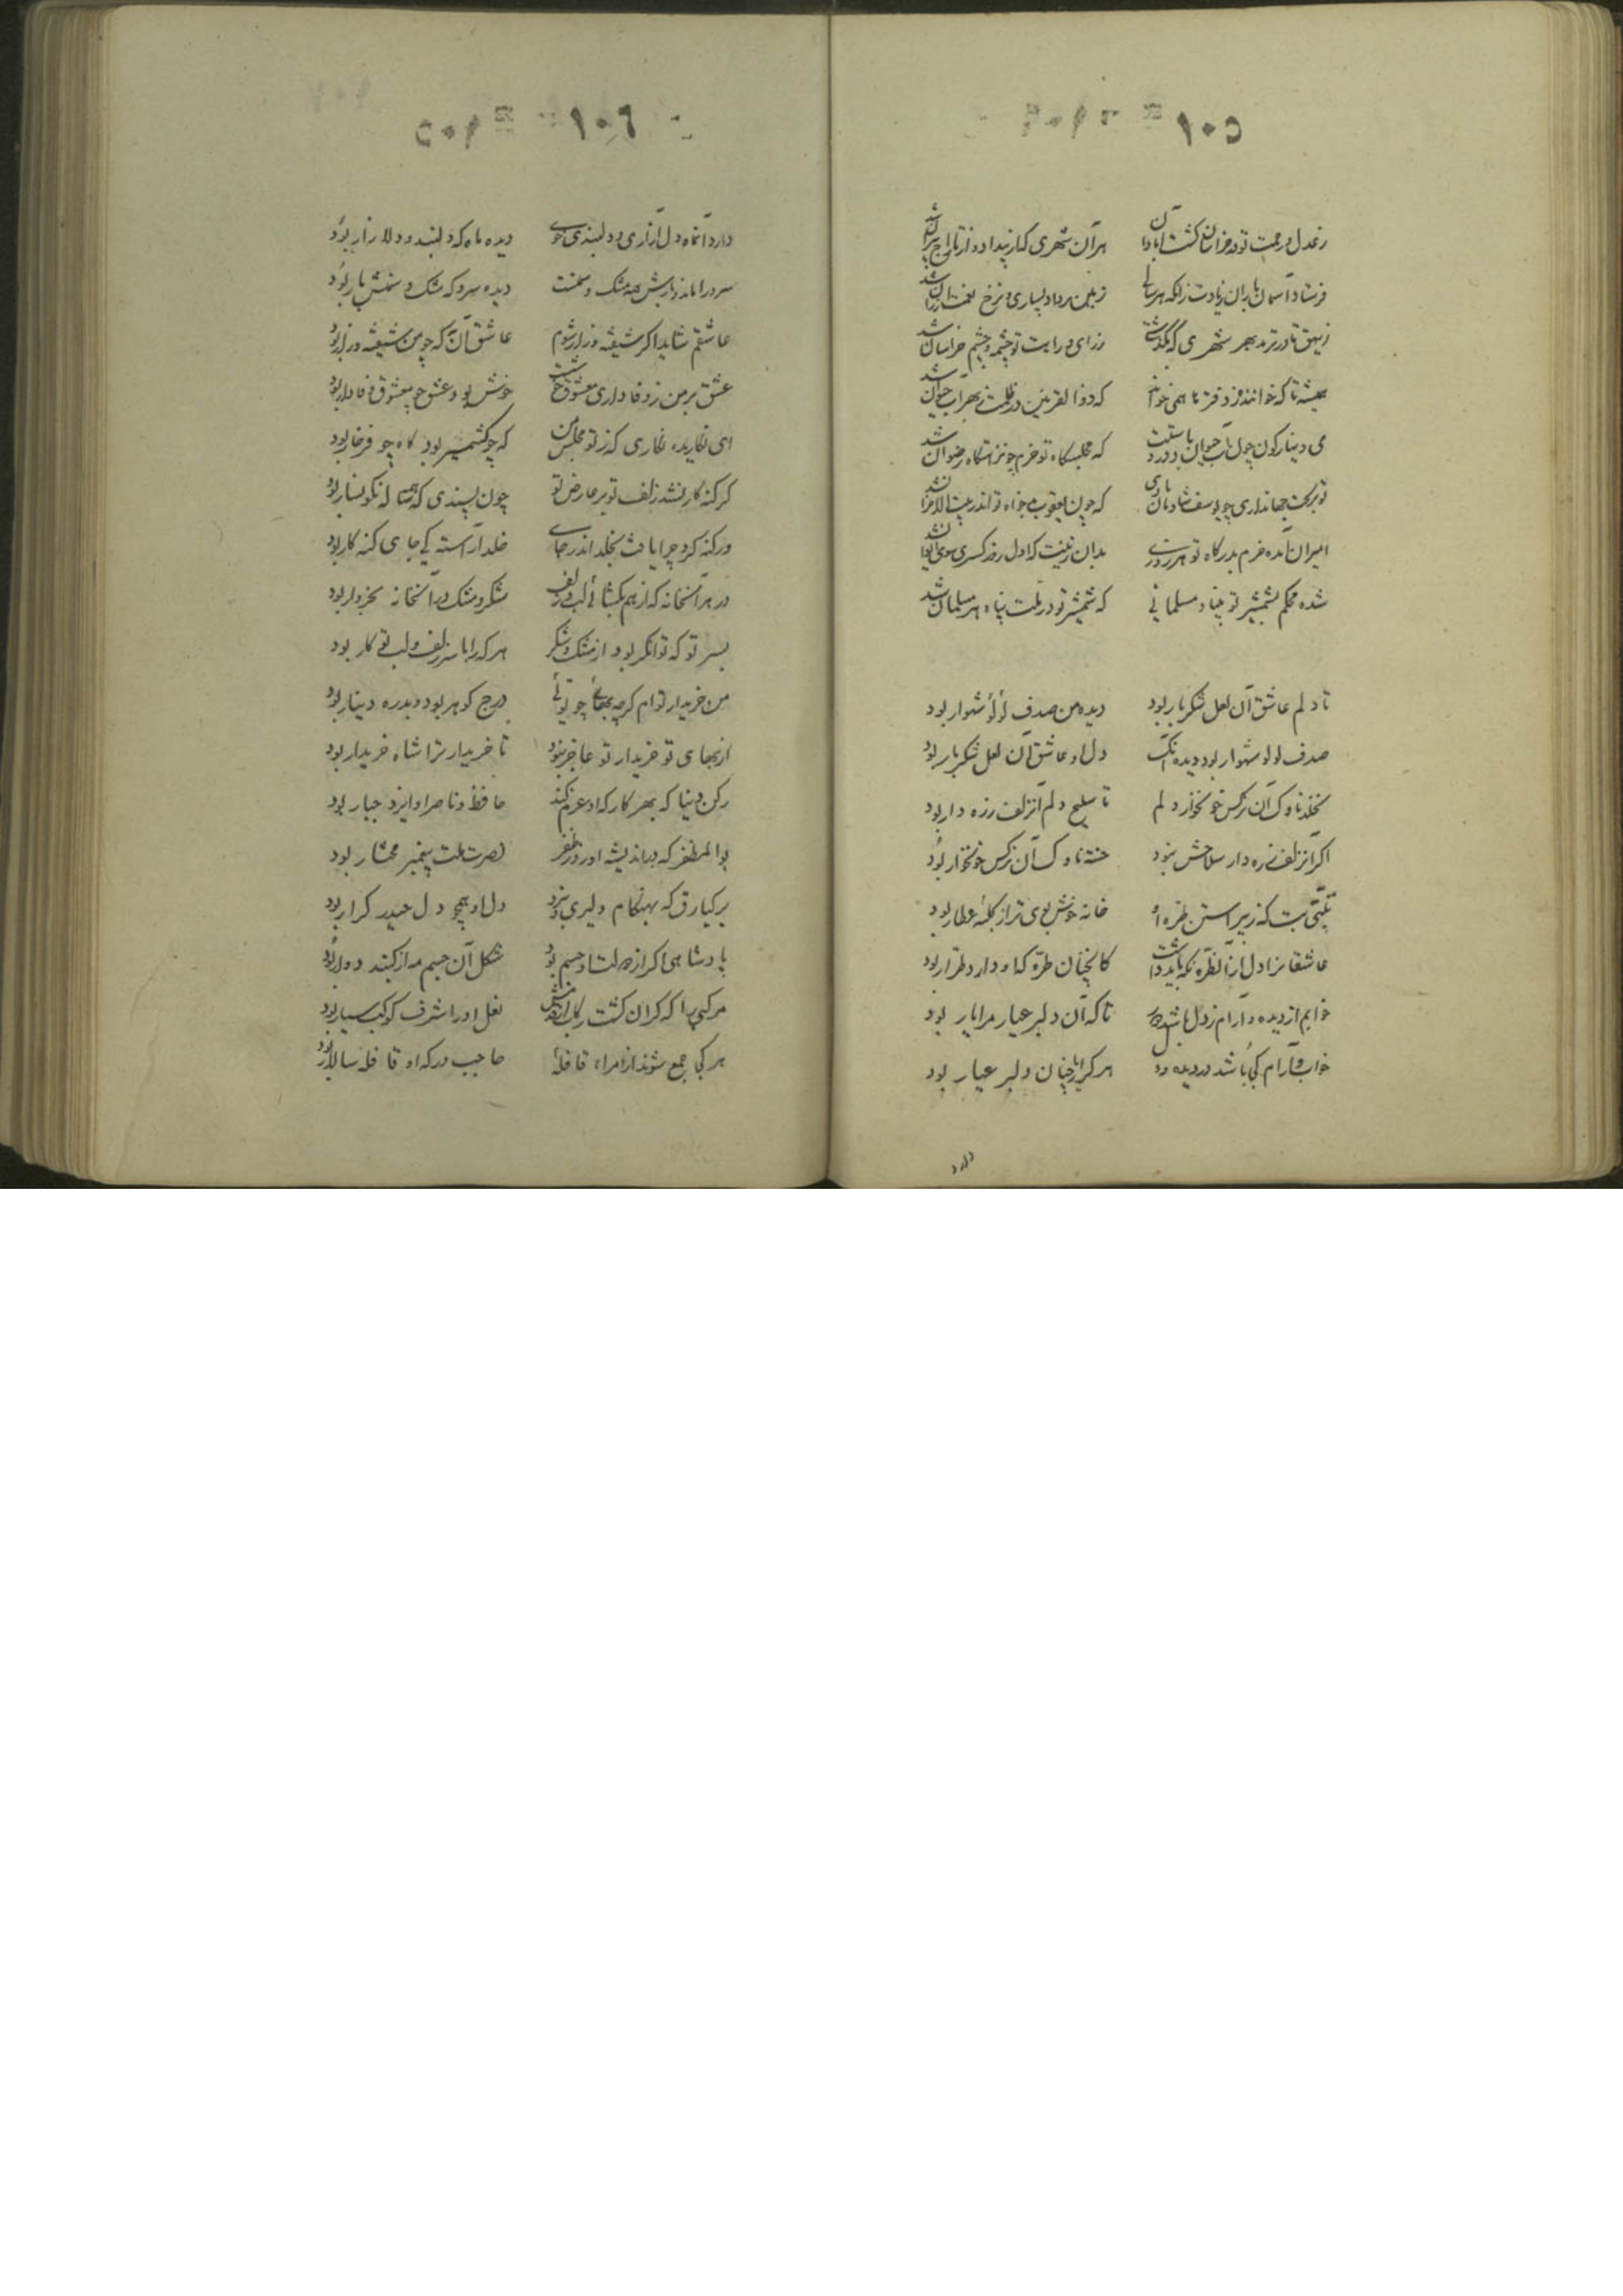 ١٠٥
ز عدل و رحمت تو در خراسان گشت آبادان
هر آن شهری که از بیداد و از تاراج ویران شد
فرستاد آسمان باران زیادت زانکه هر سالی
زمین بر داد بسیاری و نرخ نعمت ارزان شد
ز بیهق تا در ترمد بهر شهری که بگذشتی
ز رای و رایت تو چشمه و چشم خراسان شد
همیشه تا که خوانند و ز دفترها همی خوانند
که ذوالقرنین در ظلمت ز بهر آب حیوان شد
می دینارگون چون آب حیوان باد در دستت
که مجلسگاه تو خرم چو نزهتگاه رضوان شد
تو بر تخت جهانداری چو یوسف شادمان بادی
که چون یعقوب بدخواه تو اندر بیت الاحزان شد
امیران آمده خرم بدرگاه تو هر روزی
بدان زینت که اول روز کسری سوی ایوان شد
شده محکم بشمشیر تو بنیاد مسلمانی
که شمشیر تو در ملت پناه هر مسلمان شد
تا دلم عاشق آن لعل شکربار بود
دیده من صدف لؤلؤ شهوار بود
صدف لولو شهوار بود دیده آنک
دل او عاشق آن لعل شکربار بود
نخلد ناوک آن نرگس خونخوار دلم
تا سلیح دلم آن زلف زره دار بود
اگر آن زلف زره دار سلاحش نبود
خسته ناوک آن نرگس خونخوار بود
تبتی بت که ز پیراستن طره او
خانه خوش بوی تر از کلبه عطار بود
عاشقا نزا دل از آن طره نگه باید داشت
کانچنان طره که او دارد طرار بود
خوابم از دیده و آرام ز دل باشد دور
تا که آن دلبر عیار مرا یار بود
خواب و آرام کی باشد در دیده و دل
هر کرا یار چنان دلبر عیار بود
دارد
١٠٦
دارد آنماه دل آزاری و دلبندی خوی
دیده ماه که دلبند و دلازار بود
سرو را ماند و بارش همه مشک و سمنست
دیده سرو که مشک و سمنش بار بود
عاشقم شاید اگر شیفته و زار شوم
عاشق آن که چو من شیفته و زار بود
عشق بر من ز وفاداری معشوق خوشست
خوش بود عشق چو معشوق وفادار بود
ای نگاریده نگاری که ز تو مجلس من
گه چو کشمیر بود گاه چو فرخار بود
گر گنه کار نشد زلف تو بر عارض تو
چون پسندی که همه ساله نگونسار بود
ور گنه کرد چرا یافت بخلد اندر جای
خلد آراسته کی جای گنه کار بود
در هر آنخانه که از هم بگشائی لب و زلف
شکر و مشک در آنخانه بخروار بود
بسر تو که توانگر بود از مشک و شکر
هر که را با سر زلف و لب تو کار بود
من خریدار توام گر چه بهای چو توئی
درج گوهر بود و بدره دینار بود
از بهای تو خریدار تو عاجز نبود
تا خریدار ترا شاه خریدار بود
رکن دنیا که بهر کار که او عزم کند
حافظ و ناصر او ایزد جبار بود
بوالمظفر که در اندیشه او روز ظفر
نصرت ملت پیغمبر مختار بود
برکیارق که بهنگام دلیری و نبرد
دل او همچو دل حیدر کرار بود
پادشاهی اگر از دولت او جسم بود
شکل آن جسم مدار گنبد دوار بود
مرکبی را که گران گشت رکاب از قدمش
نعل او را شرف کوکب سیار بود
هر کجا جمع شوند از امراء قافلهٔ
حاجب درگه او قافله سالار بود